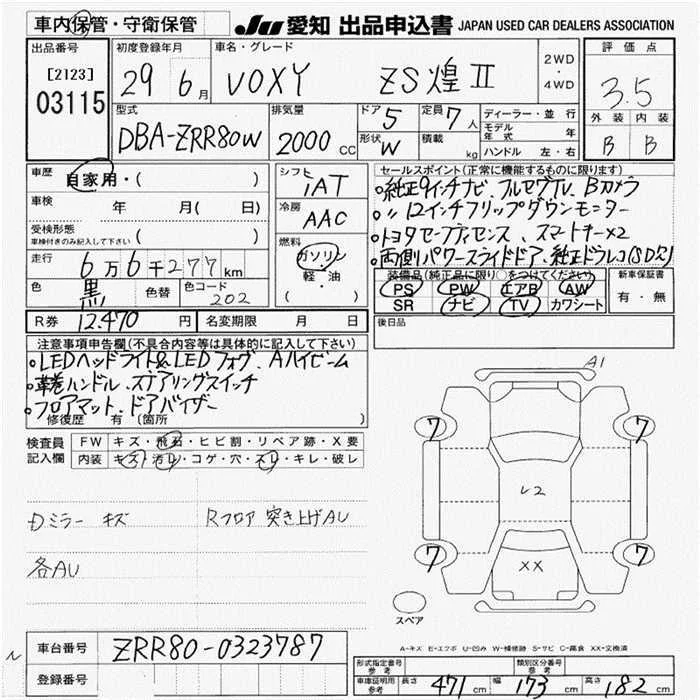 車内保管・守衛保管
JU 愛知 出品申込書 JAPAN USED CAR DEALERS ASSOCIATION
出品番号 初度登録年月 車名・グレード 評価点
[2123]
03115
29 6月 VOXY ZS煌Ⅱ 2WD・4WD 3.5
型式 排気量 ドア 5 定員 7人 ディーラー・並行 外装 内装
DBA-ZRR80W 2000cc 形状 W 積載 kg モデル年式 年 B B
ハンドル 左・右
車歴 自家用・( ) シフト iAT セールスポイント(正常に機能するものに限ります)
車検 年 月( 日) 冷房 AAC
。純正9インチナビ フルセグTV、Bカメラ
。〃 12インチフリップダウンモニター
。トヨタセーフティセンス、スマートキー×2
。両側パワースライドドア、純正ドラレコ(SDカ)
受検形態 車検付きのみ記入して下さい ( )
燃料 ガソリン 軽・油 ( )
走行 6万6千277km
色 黒 色替 色コード 202
装備品(純正品に限り○をつけてください) 新車保証書
PS PW エアB AW 有・無
SR ナビ TV カワシート
R券 12,470円 名変期限 月 日 後日品
注意事項申告欄(不具合内容等は具体的に記入して下さい)
。LEDヘッドライト&LEDフォグ、Aハイビーム
。革巻ハンドル、ステアリングスイッチ
。フロアマット、ドアバイザー
修復歴 有 〔箇所 〕
検査員記入欄 FW キズ・飛石・ヒビ割・リペア跡・X要
内装 キズ・汚レ・コゲ・穴・スレ・キレ・破レ
Dミラー キズ Rフロア 突き上げAU
各AU
A1
7 7
レ2
7 7
XX
スペア
A-キズ E-エクボ U-凹み W-補修跡 S-サビ C-腐食 XX-交換済
車台番号 ZRR80-0323787
登録番号
型式指定番号 参考 類別区分番号 参考
車庫証明用 参考 長さ 471cm 幅 173cm 高さ 182cm